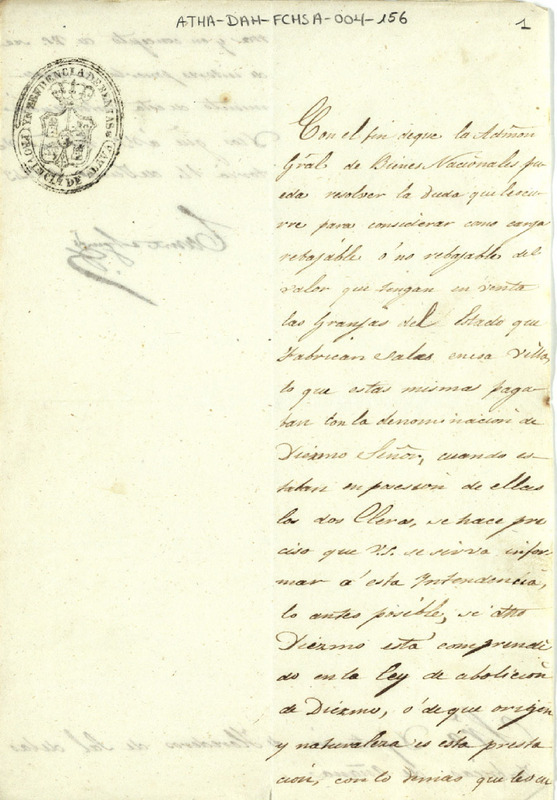 ATHA-DAH-FCHSA-004-156
1
INTENDENCIA DE RENTAS
Con el fin deque la Admon
Gral de Bienes Nacionales pu
eda resolver la duda que le ocu
rre para considerar como carga
rebajable ó no rebajable del
valor que tengan en venta
las Granjas del Estado que
Fabrican sales en esa Villa,
lo que estas mismas paga
ban con la denominacion de
Diezmo Señor, cuando es
taban en posesion de ellas
los dos Cleros, se hace pre
ciso que V.S. se sirva infor-
mar á esta Intendencia,
lo antes posible, si dho
Diezmo está comprendi
do en la Ley de abolicion
de Diezmo, ó de que origen
y naturaleza es esta presta
cion, con lo demas que le ocu